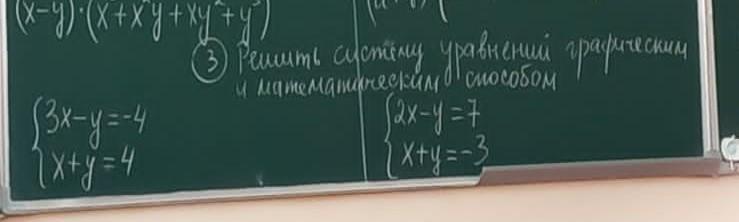 (x-y)·(x+x²y+xy²+y³)
③ Решить систему уравнений графическим
и математическим способом
{3x-y=-4
{x+y=4
{2x-y=7
{x+y=-3